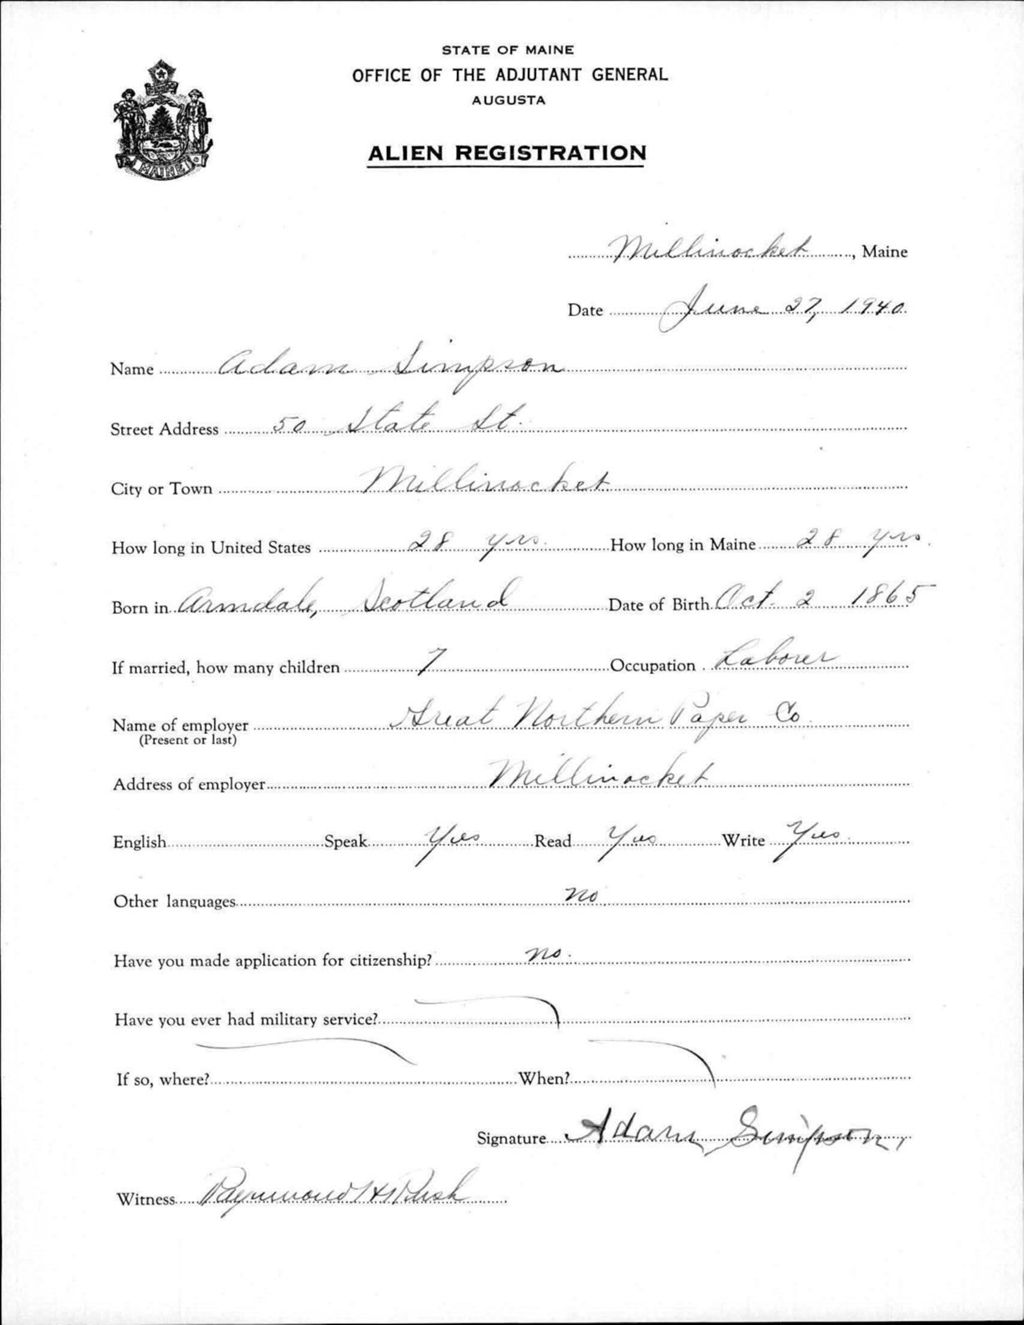 STATE OF MAINE
OFFICE OF THE ADJUTANT GENERAL
AUGUSTA
ALIEN REGISTRATION
MAINE
Millinocket, Maine
Date June 27, 1940
Name Adam Simpson
Street Address 50 State St.
City or Town Millinocket
How long in United States 28 yrs. How long in Maine 28 yrs.
Born in Armdale, Scotland Date of Birth Oct. 2 1865
If married, how many children 7 Occupation Laborer
Name of employer Great Northern Paper Co
(Present or last)
Address of employer Millinocket
English Speak Yes Read Yes Write Yes
Other languages no
Have you made application for citizenship? no.
Have you ever had military service?
If so, where? When?
Signature Adam Simpson,
Witness Raymond H Rush